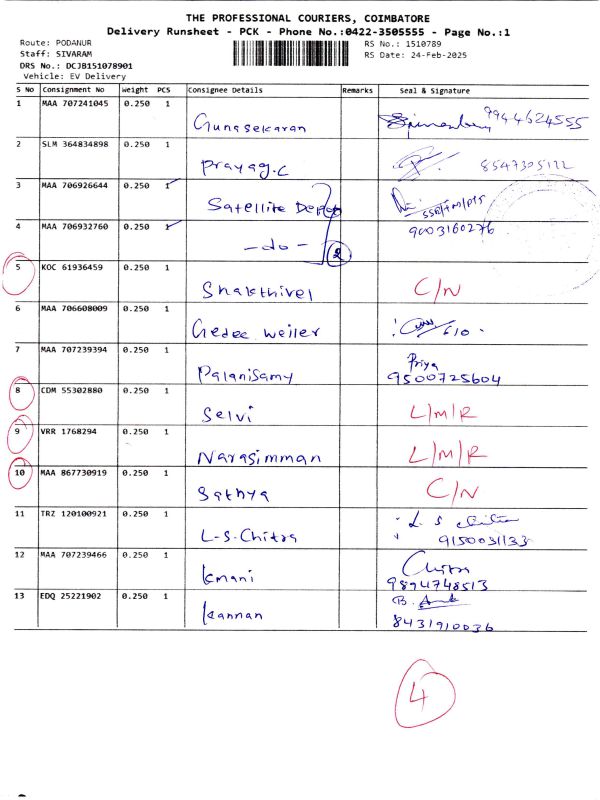 THE PROFESSIONAL COURIERS, COIMBATORE
Delivery Runsheet - PCK - Phone No.:0422-3505555 - Page No.:1
Route: PODANUR RS No.: 1510789
Staff: SIVARAM RS Date: 24-Feb-2025
DRS No.: DCJB151078901
Vehicle: EV Delivery
S No Consignment No Weight PCS Consignee Details Remarks Seal & Signature
1 MAA 707241045 0.250 1 Gunasekaran 9944624555
2 SLM 364834898 0.250 1 Prayag.C 8547305122
3 MAA 706926644 0.250 1 Satellite Depot
4 MAA 706932760 0.250 1 -do- 2 9003160276
5 KOC 61936459 0.250 1 Shakthivel C/N
6 MAA 706608009 0.250 1 Gedee Weiler
7 MAA 707239394 0.250 1 Palanisamy Priya 9500725604
8 CDM 55302880 0.250 1 Selvi L/M/R
9 VRR 1768294 0.250 1 Narasimman L/M/R
10 MAA 867730919 0.250 1 Sathya C/N
11 TRZ 120100921 0.250 1 L-S-Chitra L S Chitra 9150031133
12 MAA 707239466 0.250 1 kmani Chitra 9894748513
13 EDQ 25221902 0.250 1 kannan B. 8431910036
4